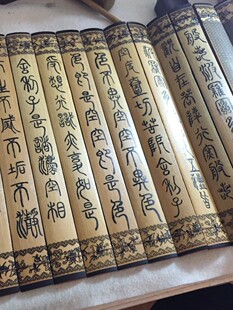 般若波羅蜜多
觀自在菩薩行深般
五蘊皆
空度一切苦厄舍利子
色不異空空不異色
色即是空空即是色
受想行識亦復如是
舍利子是諸法空相
不生不滅不垢不淨